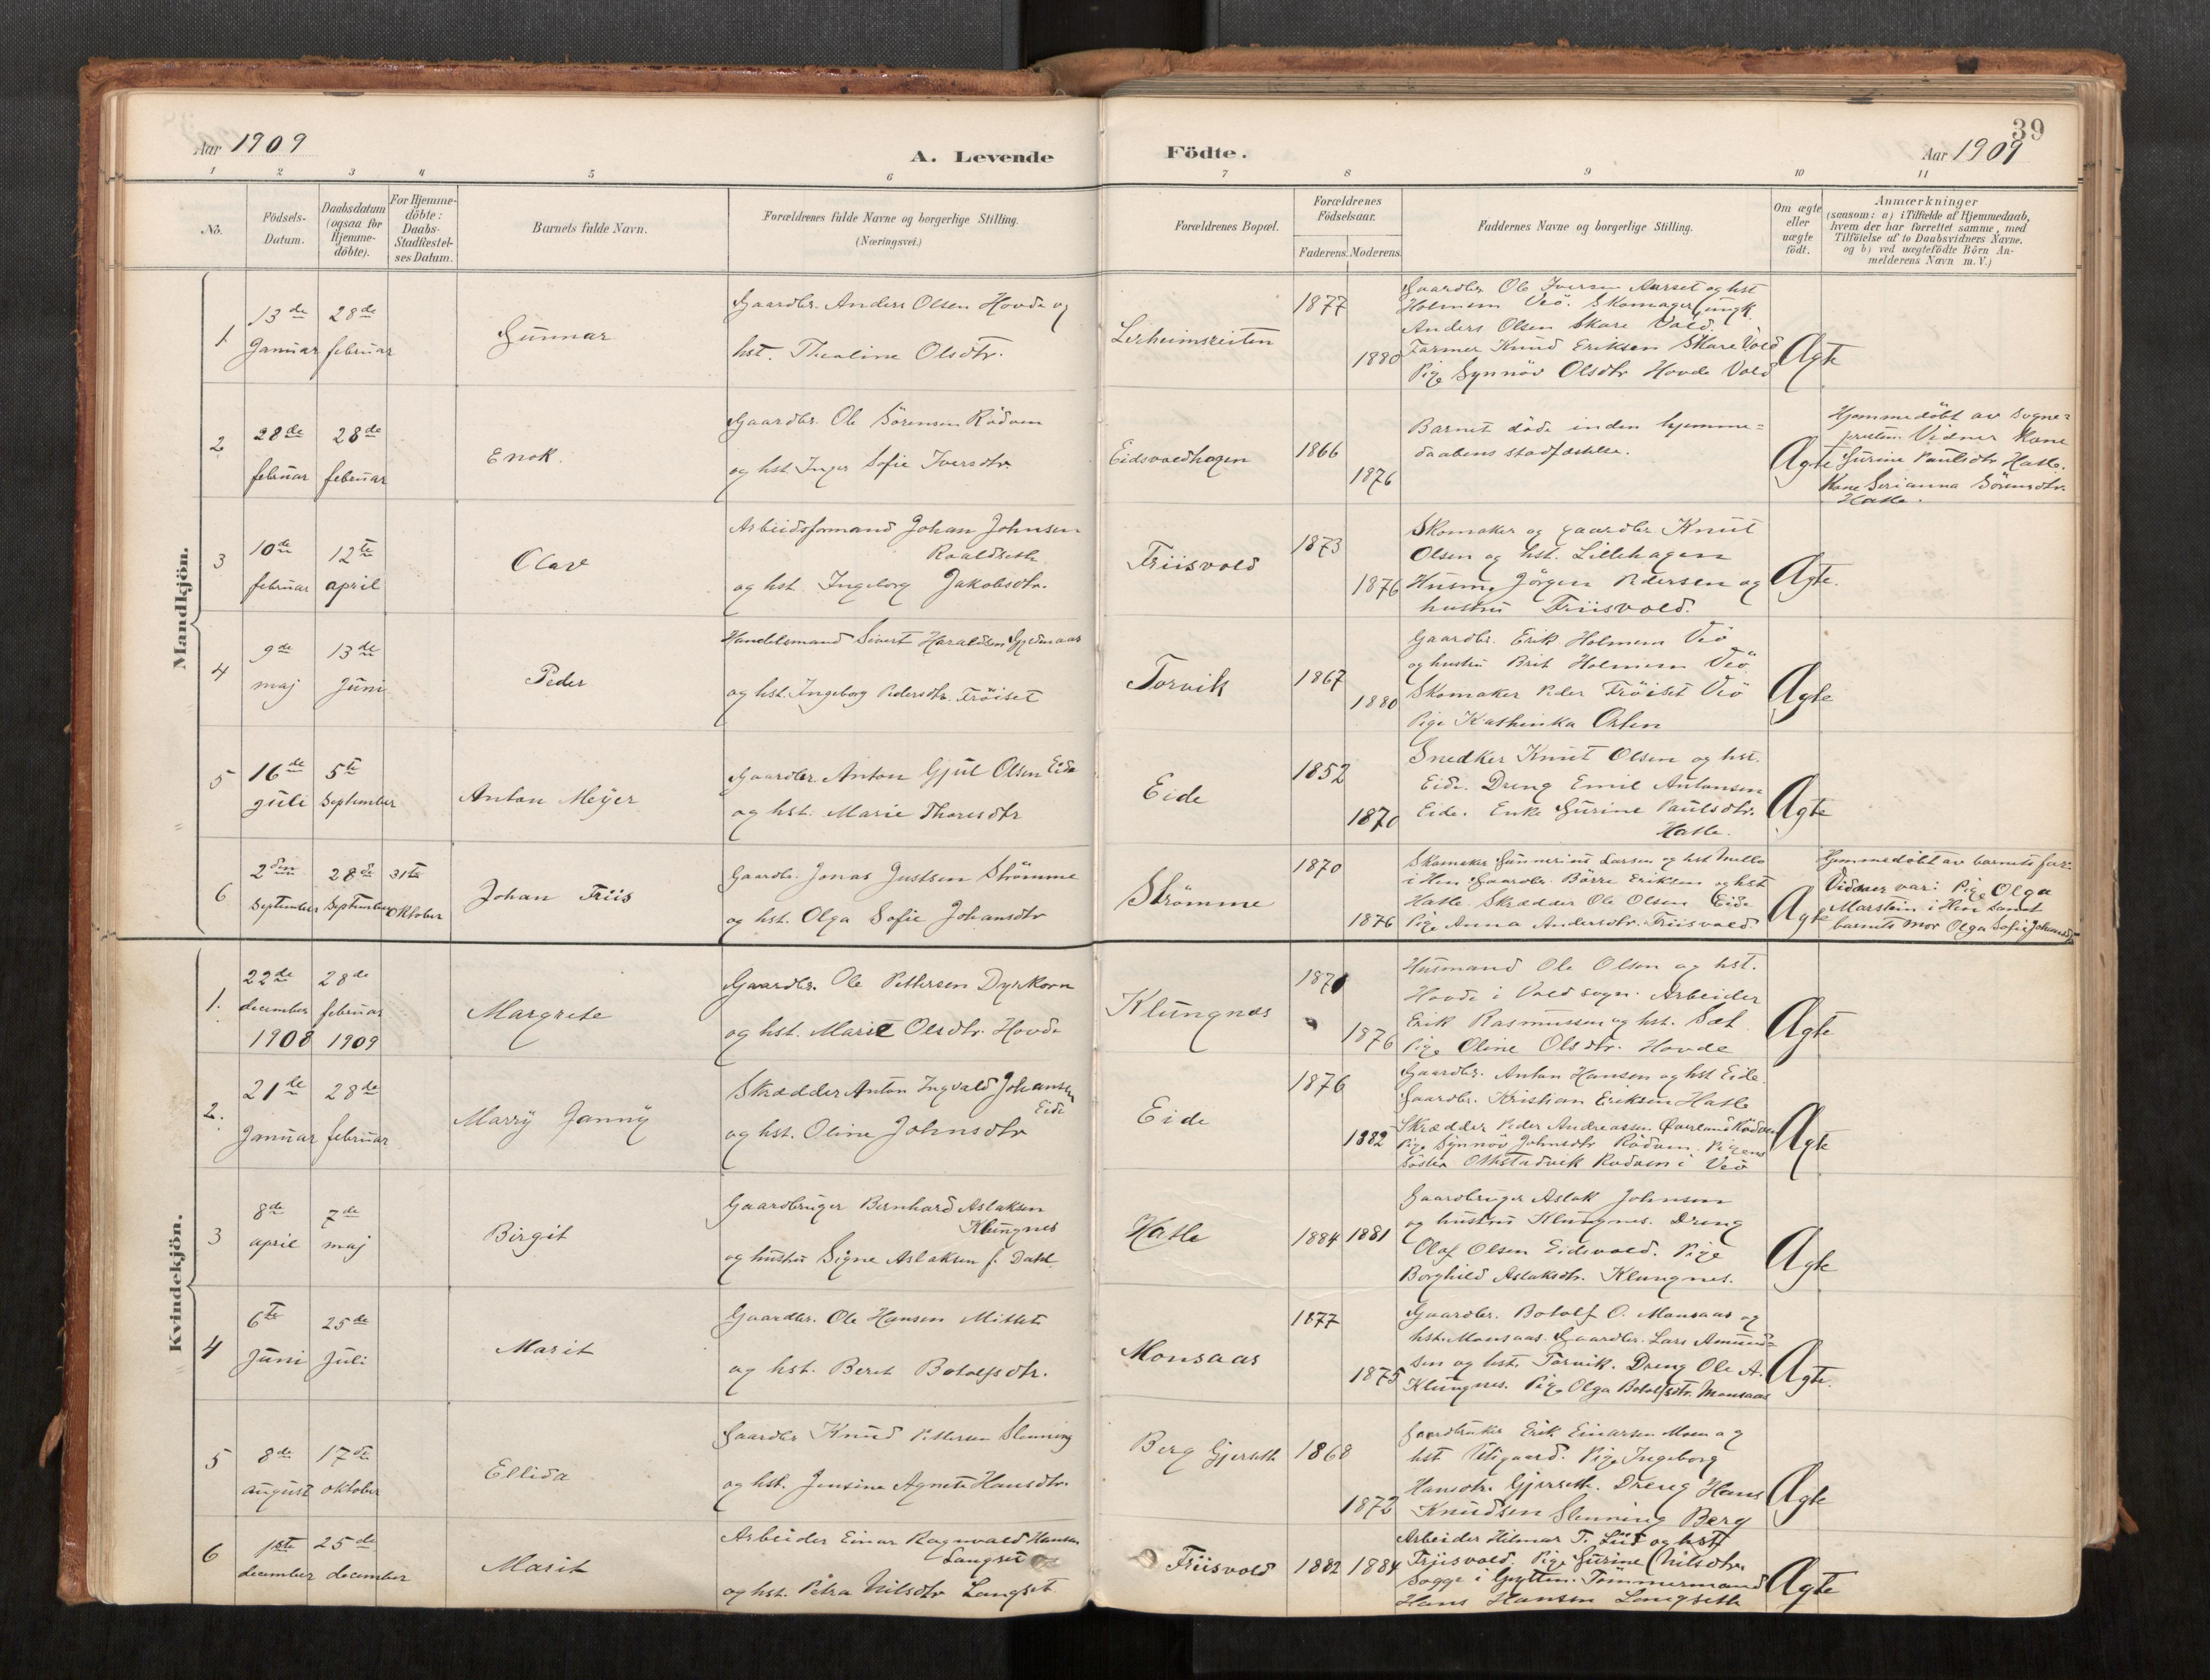 39
Aar 1909
A. Levende
Födte.
Aar 1909
1 2 3 4 5 6 7 8 9 10 11
No.
Födsels-
Datum.
Daabsdatum
(ogsaa for
Hjemme-
döbte).
For Hjemme-
döbte:
Daabs-
Stadfæstel-
ses Datum.
Barnets fulde Navn.
Forældrenes fulde Navne og borgerlige Stilling.
(Næringsvei.)
Forældrenes Bopæl.
Forældrenes
Födselsaar.
Faderens. Moderens.
Faddernes Navne og borgerlige Stilling.
Om ægte
eller
uægte
födt.
Anmærkninger
(saasom: a) i Tilfælde af Hjemmedaab,
hvem der har forrettet samme, med
Tilföielse af to Daabsvidners Navne.
og b) ved uægtefödte Börn An-
melderens Navn m. V.)
Mandkjön.
1
13de
Januar
28de
februar
Gunnar
Gaardbr. Anders Olsen Hovde og
hst. Thealine Olsdtr.
Lerheimsreiten
1877
1880
Gaardbr. Ole Iversen Aarset og hst
Holmem Veö. Skomager ungk.
Anders Olsen Skare Vold.
Farmer Knud Eriksen Skare Vold
Pige Synnöv Olsdtr Hovde Vold
Ægte
2
28de
februar
28de
februar
Enok.
Gaardbr. Ole Sörensen Rödven
og hst. Inger Sofie Iversdtr.
Eidsvoldhagen
1866
1876
Barnet döde inden hjemme=
daabens stadfæstelse.
Ægte
Hjemmedöbt av sogne=
presten. Vidner Kone
Gurine Paulsdtr Hatle.
Kone Serianna Sörensdtr.
Hatle.
3
10de
februar
12te
april
Olav
Arbeidsformand Johan Johnsen
Roaldseth
og hst. Ingeborg Jakobsdtr.
Friisvold
1873
1876
Skomaker og gaardbr Knut
Olsen og hst. Lillehagen
Husm. Jörgen Pedersen og
hustru Friisvold.
Ægte.
4
9de
maj
13de
Juni
Peder
Handelsmand Sivert Haraldsen Gjedenaas
og hst. Ingeborg Pedersdtr. Fröiset
Torvik
1867
1880
Gaardbr. Erik Holmem Veö
og hustru Brit Holmem Veö
Skomaker Peder Fröiset Veö
Pige Kathinka Orten
Ægte
5
16de
Juli
5te
September
Anton Meyer
Gaardbr. Anton Gjul Olsen Eide
og hst. Marie Thoresdtr
Eide
1852
1870
Snedker Knut Olsen og hst.
Eide. Dreng Emil Antonsen
Eide. Enke Gurine Paulsdtr.
Hatle.
Ægte
6
2den
September
28de
September
31te
Oktober
Johan Friis
Gaardbr. Jonas Justsen Strömme
og hst. Olga Sofie Johansdtr
Strömme
1870
1876
Skomaker Gunnerius Larsen og hst Mello
i Hen Gaardbr. Börre Eriksen og hst
Hatle Skrædder Ole Olsen Eide
Pige Anna Andersdtr. Friisvold
Ægte
Hjemmedöbt av barnets far.
Vidner var: Pige Olga
Marstein i Hen samt
barnets mor Olga Sofie Johansdtr
Kvindekjön.
1.
22de
december
1908
28de
februar
1909
Margrete
Gaardbr. Ole Pettersen Dyrkorn
og hst. Marit Olsdtr. Hovde
Klungnes
1871
1876
Husmand Ole Olsen og hst.
Hovde i Vold sogn. Arbeider
Erik Rasmussen og hst. Sæt
Pige Oline Olsdtr. Hovde
Ægte
2.
21de
Januar
28de
februar
Marry Janny
Skrædder Anton Ingvald Johansen
Eide
og hst. Oline Johnsdtr
Eide
1876
1882
Gaardbr. Anton Hansen og hst Eide.
Gaardbr. Kristian Eriksen Hatle
Skrædder Peder Andreassen Överland Rödven
Pige Synnöv Johnsdtr Rödven. Pigens
söster Rödven i Veö
Ægte
3
8de
april
7de
maj
Birgit
Gaardbruger Bernhard Aslaksen
Klungnes
og hustru Signe Aslaksen f. Dahl
Hatle
1884 1881
Gaardbruger Aslak Johnsen
og hustru Klungnes. Dreng
Olaf Olsen Eidsvold. Pige
Borghild Aslaksdtr. Klungnes.
Ægte
4
6te
Juni
25de
Juli
Marit
Gaardbr. Ole Hansen Mittet
og hst. Beret Botolfsdtr.
Monsaas
1877
1875
Gaardbr. Botolf O. Monsaas og
hst. Monsaas. Gaardbr. Lars Amund=
sen og hst. Torvik. Dreng Ole A.
Klungnes. Pige Olga Botolfsdtr. Monsaas
Ægte.
5
8de
august
17de
oktober
Ellida
Gaardbr Knud Pettersen Slenning
og hst. Jensine Agnete Hansdtr.
Berg Gjerseth
1868
1872
Gaardbruker Erik Einarsen Moen og
hst Utigaard. Pige Ingeborg
Hansdtr. Gjerseth. Dreng Hans
Knudsen Slenning Berg
Ægte
6
1ste
december
25de
december
Marit
Arbeider Einar Ragnvald Hansen
Langset
og hst. Petra Nilsdtr Langset
Friisvold
1882 1884
Arbeider Hilmar T. Lud og hst
Friisvold. Pige Gurine Nilsdtr.
Sogge i Grytten. Tömmermand
Hans Hansen Langseth
Ægte